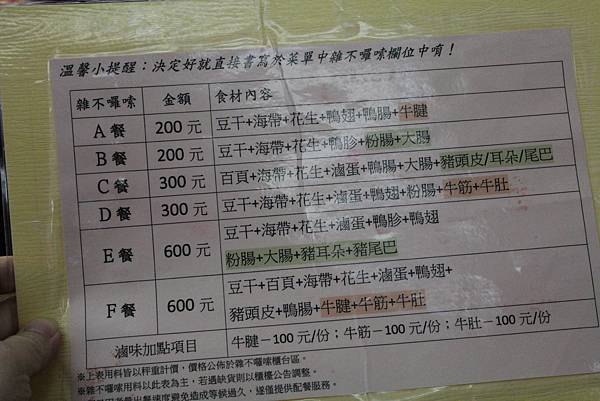 溫馨小提醒：決定好就直接書寫於菜單中雜不囉嗦欄位中唷！
雜不囉嗦 金額 食材內容
A餐 200元 豆干+海帶+花生+鴨翅+鴨腸+牛腱
B餐 200元 豆干+海帶+花生+鴨胗+粉腸+大腸
C餐 300元 百頁+海帶+花生+滷蛋+鴨腸+大腸+豬頭皮/耳朵/尾巴
D餐 300元 豆干+海帶+花生+滷蛋+鴨翅+粉腸+牛筋+牛肚
E餐 600元 豆干+海帶+花生+滷蛋+鴨胗+鴨翅
粉腸+大腸+豬耳朵+豬尾巴
F餐 600元 豆干+百頁+海帶+花生+滷蛋+鴨翅+
豬頭皮+鴨腸+牛腱+牛筋+牛肚
滷味加點項目 牛腱－100元/份；牛筋－100元/份；牛肚－100元/份
※上表用料皆以秤重計價，價格公佈於雜不囉嗦櫃台區。
※雜不囉嗦用料以此表為主，若遇缺貨則以櫃檯公告調整。
出餐速度避免造成等候過久，遂僅提供配餐服務。